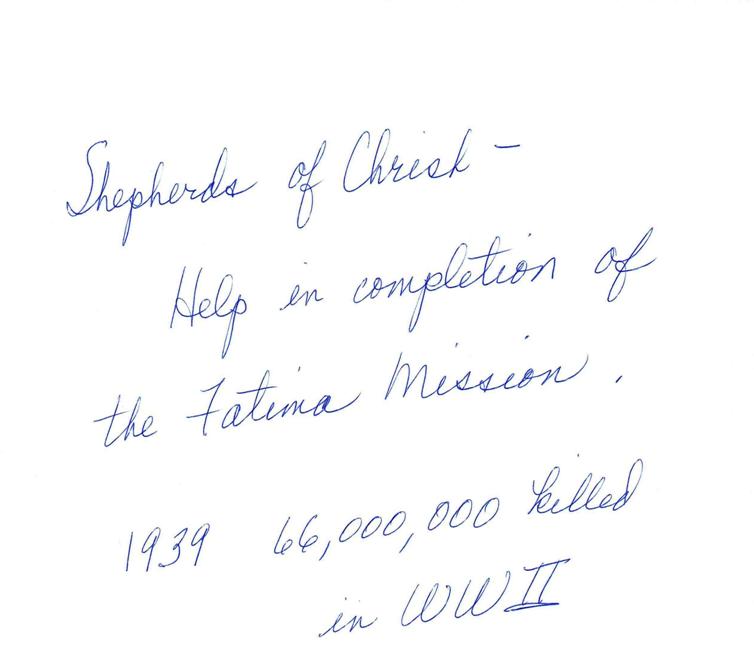 Shepherds of Christ –
Help in completion of
the Fatima Mission.
1939 66,000,000 killed
in WW II